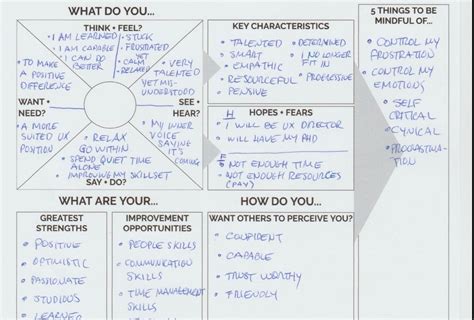 WHAT DO YOU...
THINK • FEEL?
• I AM LEARNED
• I AM CAPABLE
• I CAN DO
BETTER
• STUCK
• FRUSTRATED
YET
• CALM
• RELAXED
• TO MAKE
A POSITIVE
DIFFERENCE
• VERY
TALENTED
YET MIS-
UNDERSTOOD
WANT •
NEED?
SEE •
HEAR?
• A MORE
SUITED UX
POSITION
• RELAX
GO WITHIN
• SPEND QUIET TIME
ALONE
• IMPROVING MY SKILLSET
• MY INNER
VOICE
SAYING
IT'S
COMING
SAY • DO?
KEY CHARACTERISTICS
• TALENTED
• SMART
• EMPATHIC
• RESOURCEFUL
• PENSIVE
• DETERMINED
• I NO LONGER
FIT IN
• PROGRESSIVE
HOPES • FEARS
H
• I WILL BE UX DIRECTOR
• WILL HAVE MY PHD
F
• NOT ENOUGH TIME
• NOT ENOUGH RESOURCES
(PAY)
5 THINGS TO BE
MINDFUL OF...
• CONTROL MY
FRUSTRATION
• CONTROL MY
EMOTIONS
• SELF
CRITICAL
• CYNICAL
• PROCRASTINA-
TION
WHAT ARE YOUR...
GREATEST
STRENGTHS
• POSITIVE
• OPTIMISTIC
• PASSIONATE
• STUDIOUS
• LEARNED
IMPROVEMENT
OPPORTUNITIES
• PEOPLE SKILLS
• COMMUNICATION
SKILLS
• TIME MANAGEMENT
SKILLS
HOW DO YOU...
WANT OTHERS TO PERCEIVE YOU?
• CONFIDENT
• CAPABLE
• TRUST WORTHY
• FRIENDLY